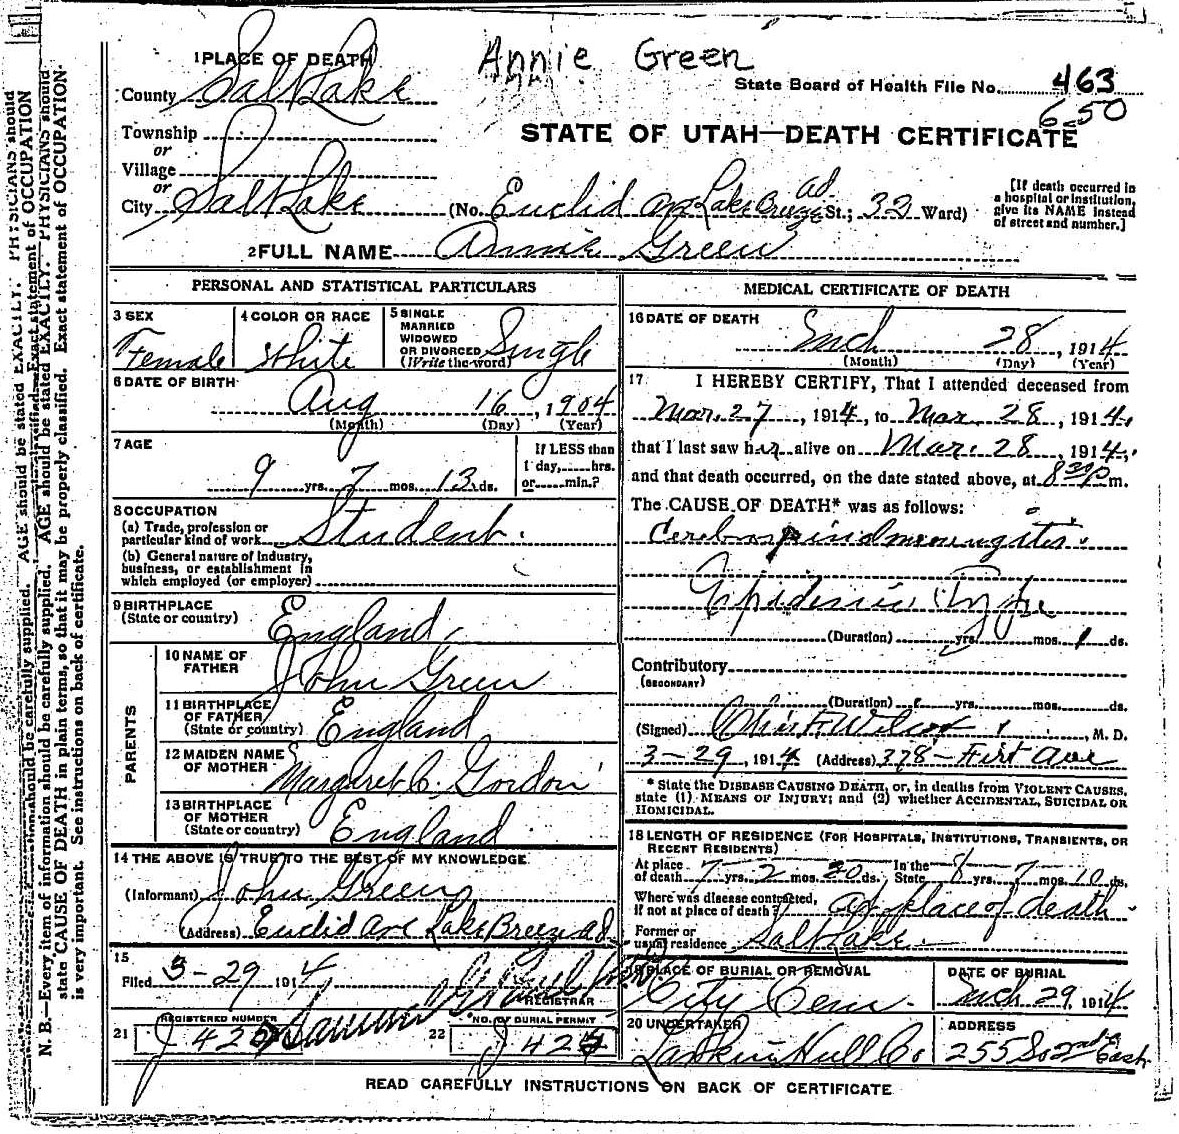 Annie Green
1 PLACE OF DEATH
State Board of Health File No. 463
650
County Salt Lake
STATE OF UTAH—DEATH CERTIFICATE
Township
or
Village
or
City Salt Lake (No. Euclid Ave Lake Breeze ad St.; 32 Ward)
[If death occurred in a hospital or institution, give its NAME instead of street and number.]
2 FULL NAME Annie Green
PERSONAL AND STATISTICAL PARTICULARS
3 SEX Female
4 COLOR OR RACE White
5 SINGLE MARRIED WIDOWED OR DIVORCED (Write the word) Single
6 DATE OF BIRTH
Aug 16, 1904
(Month) (Day) (Year)
7 AGE
9 yrs. 7 mos. 13 ds.
If LESS than 1 day, hrs. or min.?
8 OCCUPATION
(a) Trade, profession or particular kind of work Student.
(b) General nature of industry, business, or establishment in which employed (or employer)
9 BIRTHPLACE
(State or country) England
PARENTS
10 NAME OF FATHER John Green
11 BIRTHPLACE OF FATHER (State or country) England
12 MAIDEN NAME OF MOTHER Margaret C. Gordon
13 BIRTHPLACE OF MOTHER (State or country) England
14 THE ABOVE IS TRUE TO THE BEST OF MY KNOWLEDGE
(Informant) John Green
(Address) Euclid Ave Lake Breeze ad
15
Filed 3-29 1914
REGISTRAR
21 REGISTERED NUMBER J 425
22 NO. OF BURIAL PERMIT J 425
MEDICAL CERTIFICATE OF DEATH
16 DATE OF DEATH
Mch 28, 1914
(Month) (Day) (Year)
17 I HEREBY CERTIFY, That I attended deceased from
Mar. 27, 1914, to Mar 28, 1914,
that I last saw her alive on Mar. 28, 1914,
and that death occurred, on the date stated above, at 8 30 p m.
The CAUSE OF DEATH* was as follows:
Cerebrospinal meningitis.
Epidemic Type
(Duration) yrs. mos. 1 ds.
Contributory
(SECONDARY)
(Duration) yrs. mos. ds.
(Signed) Wilcox, M. D.
3-29, 1914 (Address) 378 - First Ave
* State the DISEASE CAUSING DEATH, or, in deaths from VIOLENT CAUSES, state (1) MEANS OF INJURY; and (2) whether ACCIDENTAL, SUICIDAL OR HOMICIDAL.
18 LENGTH OF RESIDENCE (FOR HOSPITALS, INSTITUTIONS, TRANSIENTS, OR RECENT RESIDENTS)
At place of death 7 yrs. 2 mos. 20 ds. In the State 8 yrs. 7 mos. 10 ds.
Where was disease contracted, if not at place of death? At place of death.
Former or usual residence Salt Lake
19 PLACE OF BURIAL OR REMOVAL City Cem.
DATE OF BURIAL Mch 29 1914
20 UNDERTAKER Larkin Hull Co.
ADDRESS 255 So 2nd East
READ CAREFULLY INSTRUCTIONS ON BACK OF CERTIFICATE
N. B.—Every item of information should be carefully supplied. AGE should be stated EXACTLY. PHYSICIANS should
state CAUSE OF DEATH in plain terms, so that it may be properly classified. Exact statement of OCCUPATION
is very important. See instructions on back of certificate.